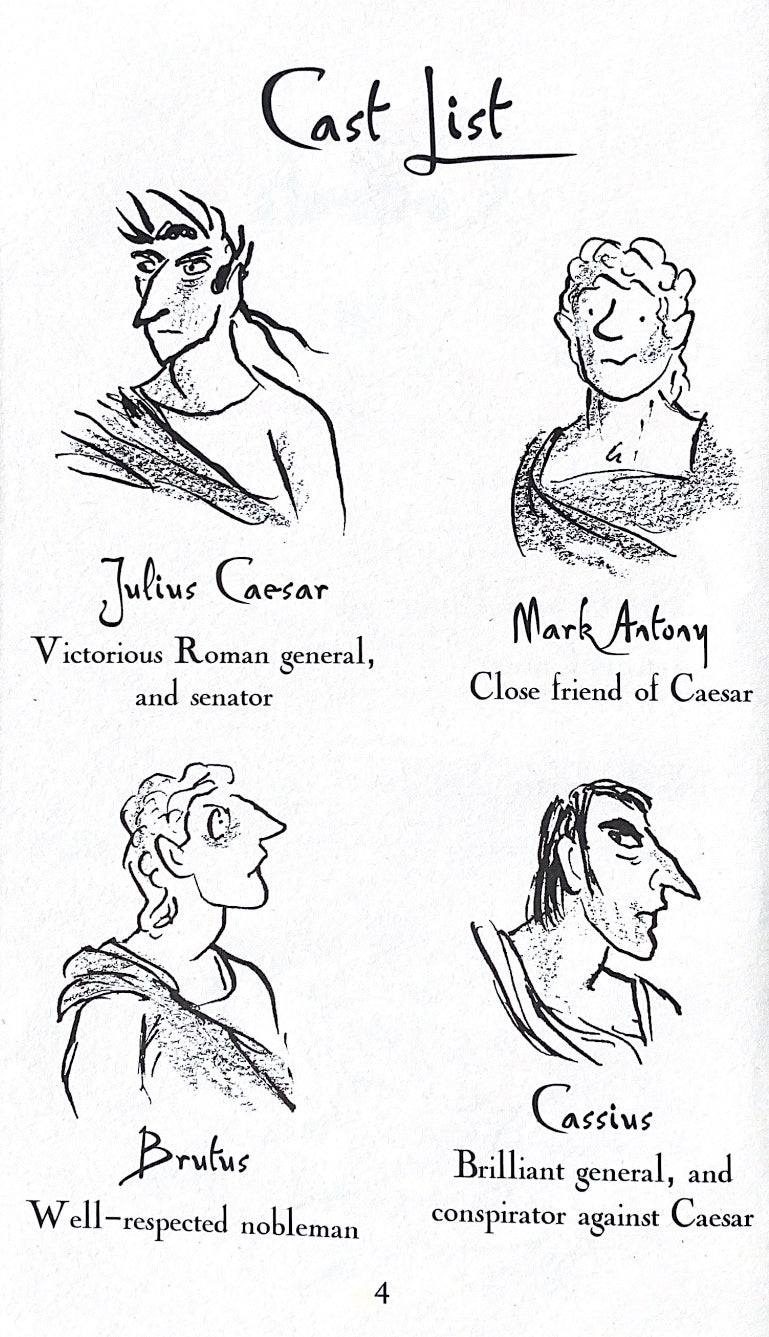 Cast List
Julius Caesar
Victorious Roman general,
and senator
Mark Antony
Close friend of Caesar
Brutus
Well-respected nobleman
Cassius
Brilliant general, and
conspirator against Caesar
4